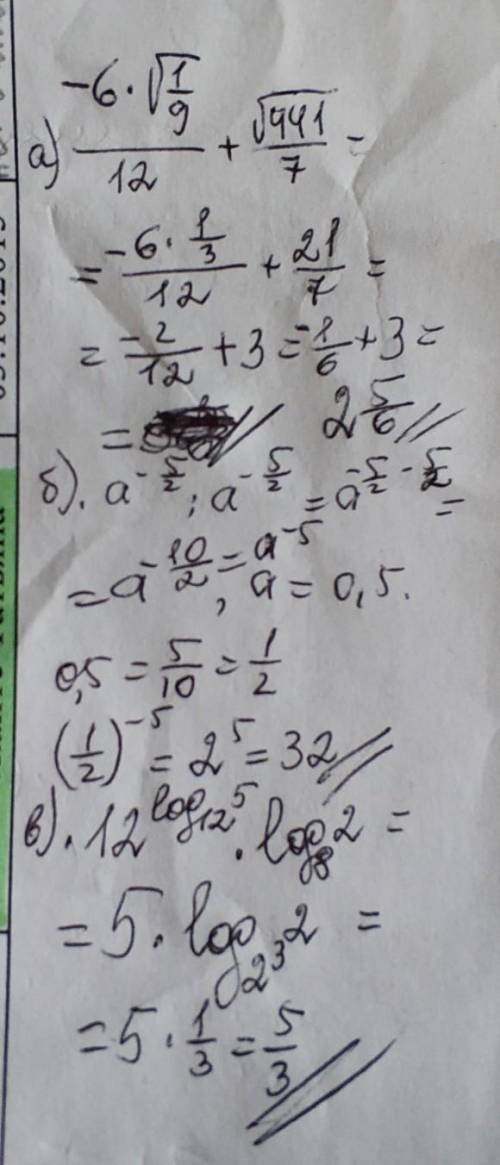 а) (-6·√(1/9))/12 + √441/7 =
= (-6·1/3)/12 + 21/7 =
= -2/12 + 3 = -1/6 + 3 =
= 2 5/6 //
б). a^(-5/2) : a^(-5/2) = a^(-5/2 - 5/2) =
= a^(-10/2) = a^(-5), a = 0,5.
0,5 = 5/10 = 1/2
(1/2)^(-5) = 2^5 = 32 //
в). 12^(log₁₂5) · log₈2 =
= 5 · log_(2^3) 2 =
= 5 · 1/3 = 5/3 //